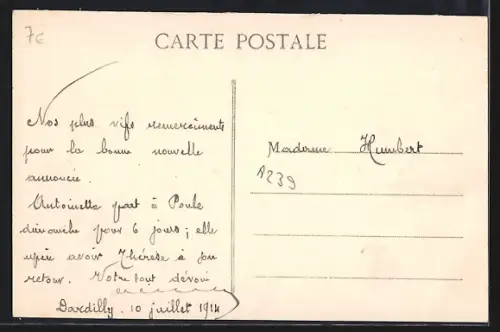 7€
CARTE POSTALE
Nos plus vifs remerciments
pour la bonne nouvelle
annoncée.
Antoinette part à Poule
dimanche pour 6 jours ; elle
avoir Thérèse à son
retour. Votre tout dévoué
Dardilly, 10 juillet 1914
Madame Humbert
1239